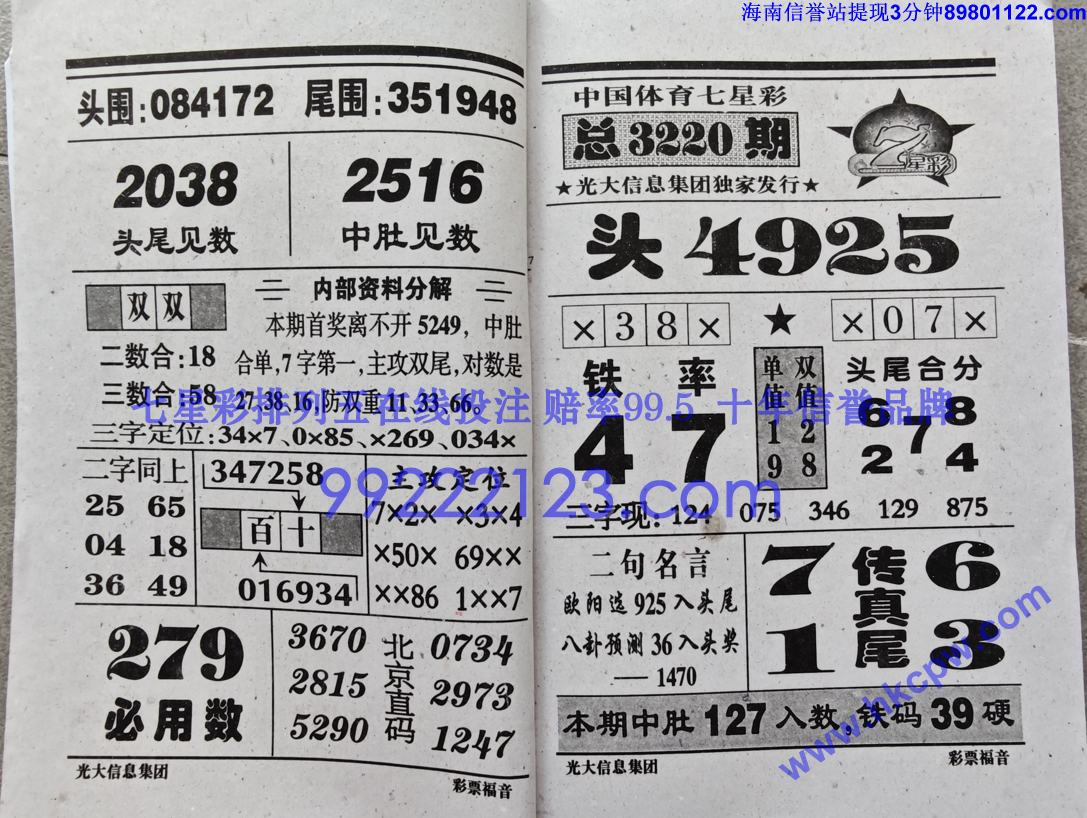 海南信誉站提现3分钟89801122.com
头围:084172 尾围:351948
2038
头尾见数
2516
中肚见数
双双
二数合:18
三数合:58
内部资料分解
本期首奖离不开5249,中肚
合单,7字第一,主攻双尾,对数是
27,38,16,防双重11、33、66。
七星彩排列五在线投注 赔率99.5 十年信誉品牌
三字定位:34×7、0×85、×269、034×
二字同上
25 65
04 18
36 49
347258
百十
016934
主攻定位
7×2× ×3×4
×50× 69××
××86 1××7
99222123.com
279
必用数
3670
2815
5290
北京直码
0734
2973
1247
光大信息集团
彩票福音
中国体育七星彩
总3220期
★光大信息集团独家发行★
7星彩
头4925
×38× ★ ×07×
铁率
47
单值19
双值28
头尾合分
6 8
7
2 4
三字现:124 075 346 129 875
二句名言
欧阳选925入头尾
八卦预测36入头奖
——1470
7 6
传真尾
1 3
www.hkcpw.com
本期中肚127入数,铁码39硬
光大信息集团
彩票福音